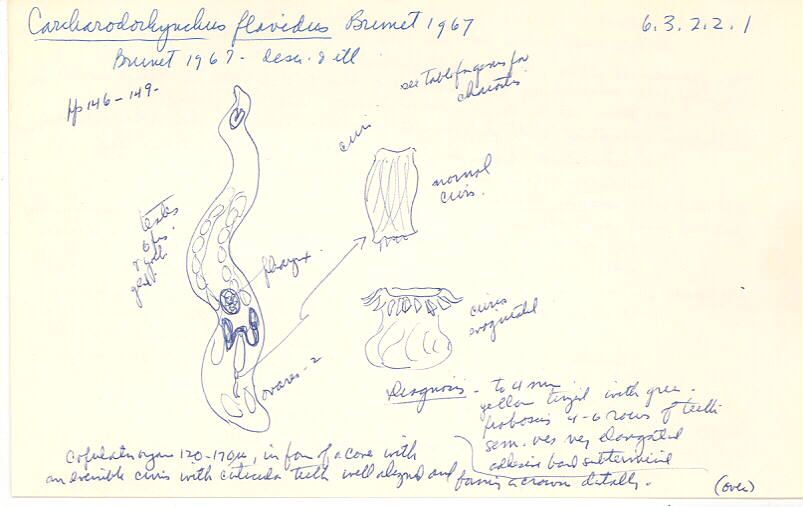 Carcharodorhynchus flavidus Brunet 1967
6.3.2.2.1
Brunet 1967 - descr. & ill
see table for genus for
characters
pp 146-149-
cirrus
normal
cirrus.
testes
&
gld.
pharynx
cirrus
evaginated
ovaries-2
Diagnosis - to 4 mm
yellow tinged with green.
proboscis 4-6 rows of teeth
sem. ves very elongated
adhesive band subterminal
Copulatory organ 120-170µ, in form of a cone with
an eversible cirrus with cuticular teeth well aligned and forming a crown distally.
(over)